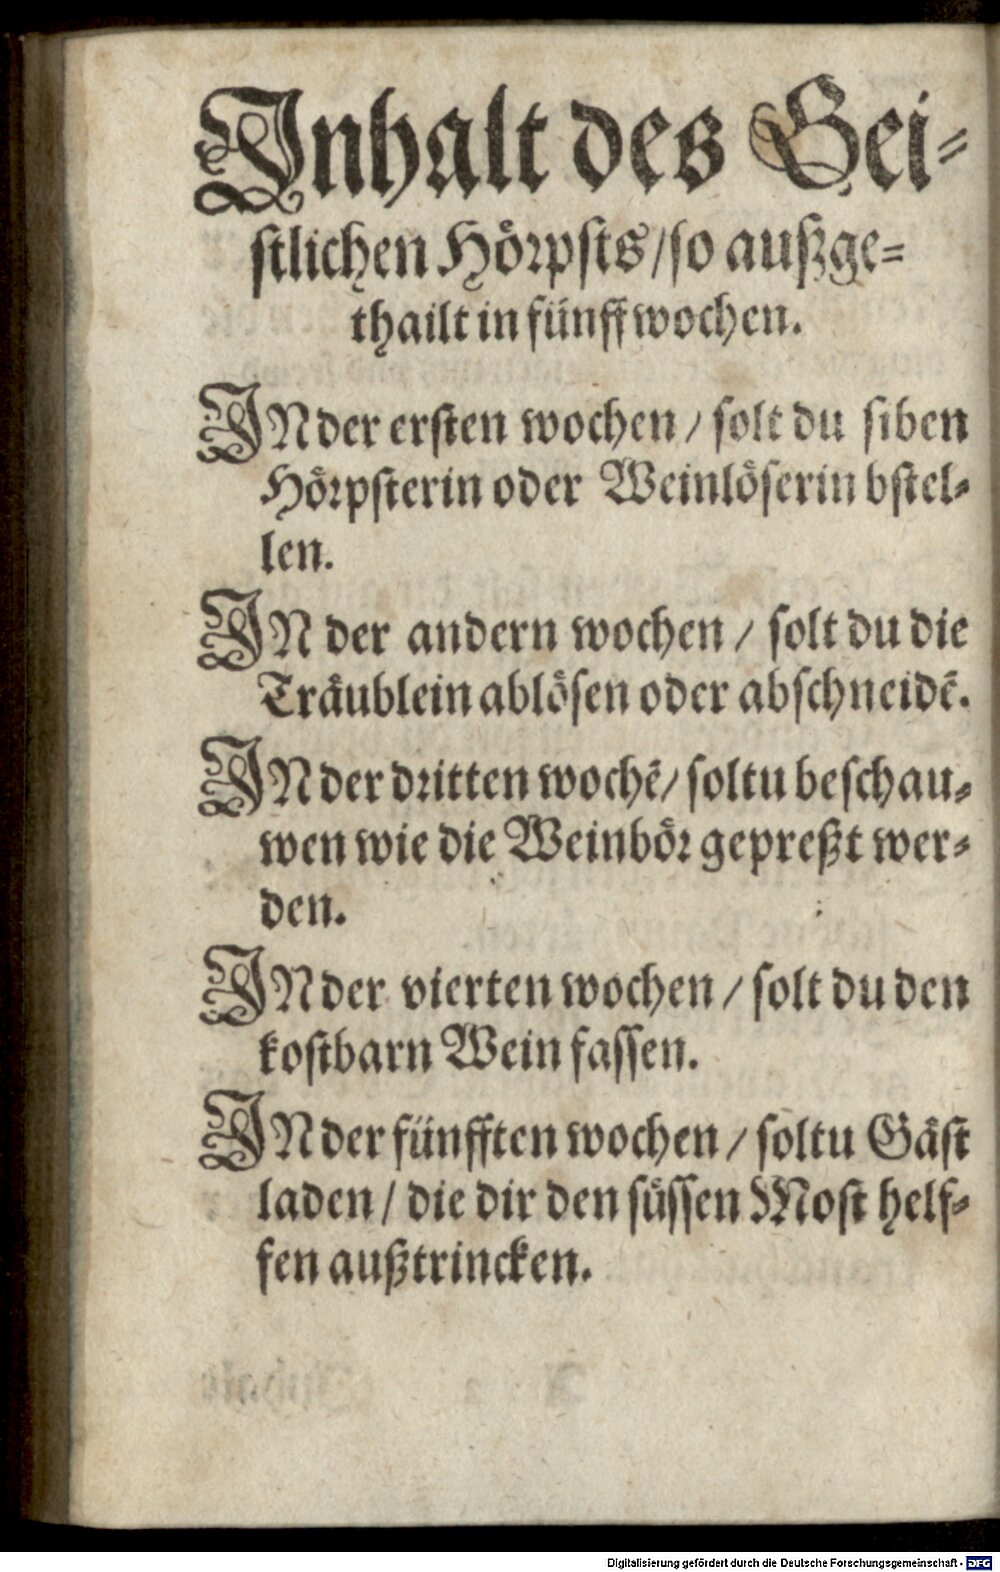 Inhalt des Gei-
stlichen Hörpsts/so außge-
thailt in fünff wochen.
IN der ersten wochen / solt du siben
Hörpsterin oder Weinlöserin bstel-
len.
IN der andern wochen / solt du die
Träublein ablösen oder abschneidẽ.
IN der dritten wochẽ/ soltu beschau-
wen wie die Weinbör gepreßt wer-
den.
IN der vierten wochen / solt du den
kostbarn Wein fassen.
IN der fünfften wochen / soltu Gäst
laden / die dir den süssen Most helf-
fen außtrincken.
Digitalisierung gefördert durch die Deutsche Forschungsgemeinschaft - DFG